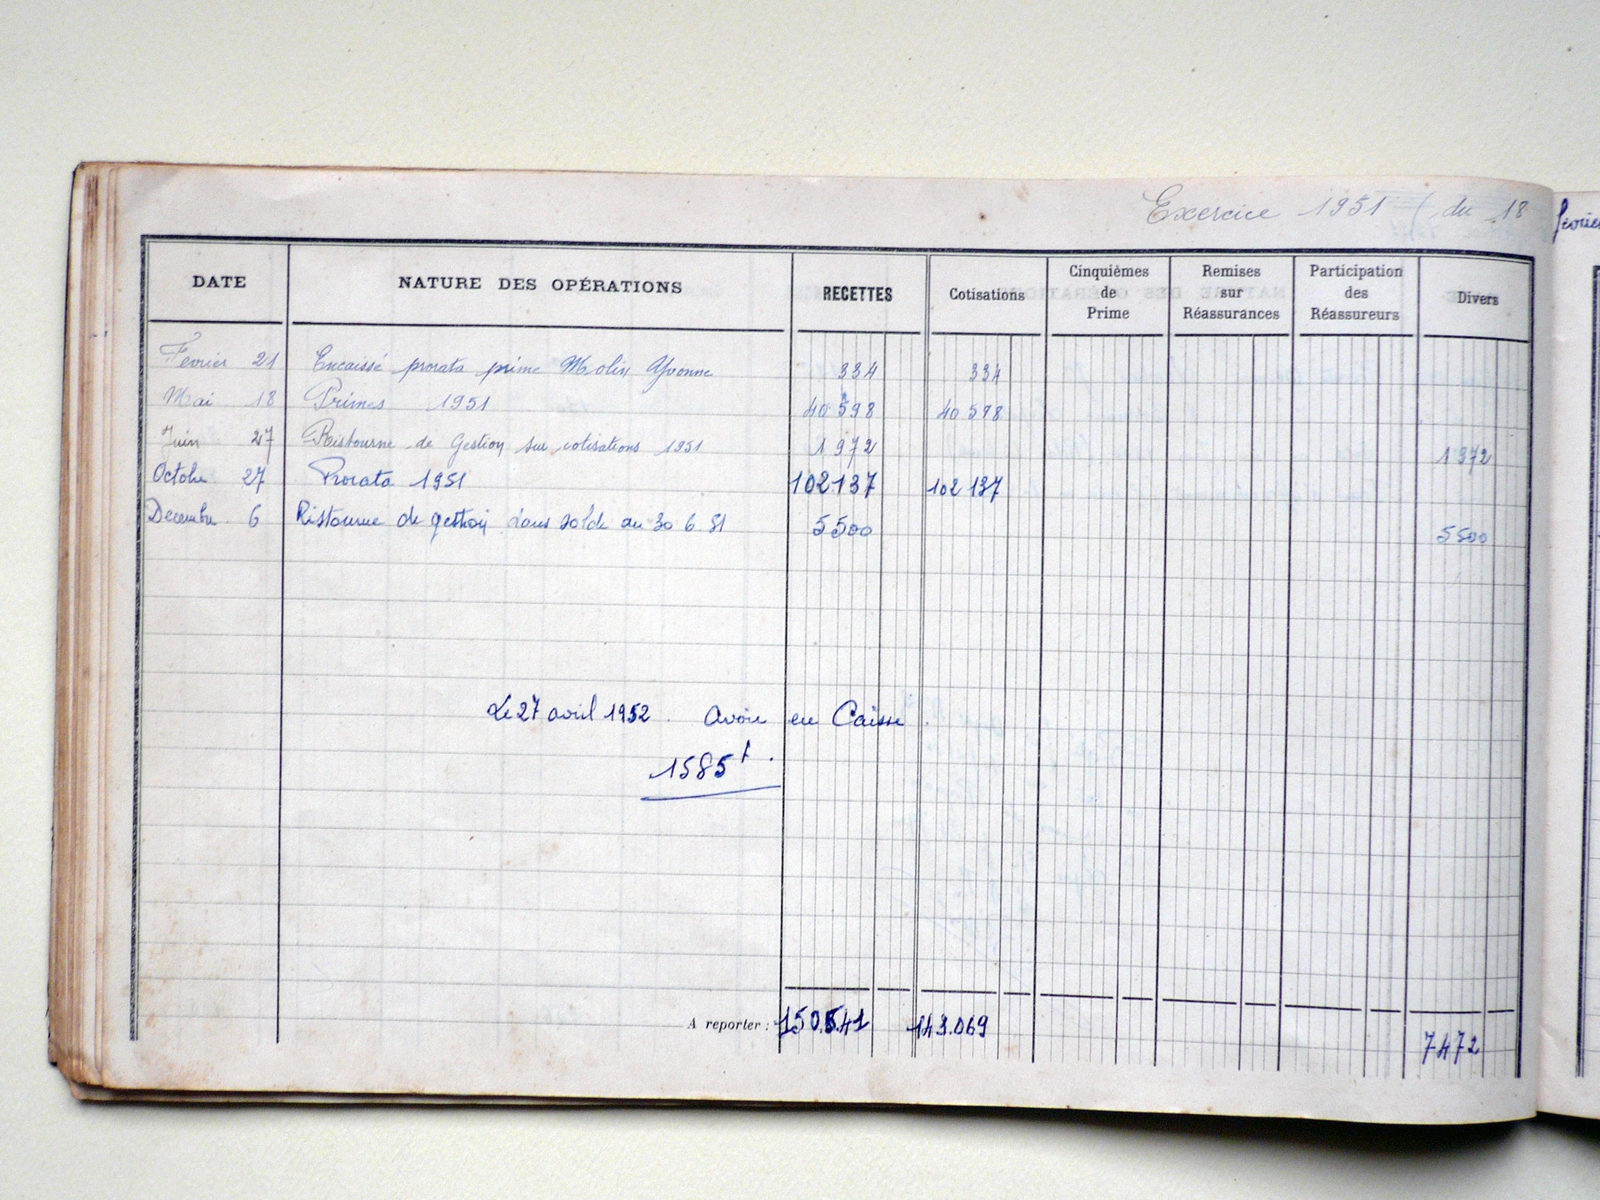 Exercice 1951 ( du 18 février
DATE NATURE DES OPÉRATIONS RECETTES Cotisations Cinquièmes de Prime Remises sur Réassurances Participation des Réassureurs Divers
Fevrier 21 Encaissé prorata prime Molin Yvonne 334 334
Mai 18 Primes 1951 40 598 40 598
Juin 27 Ristourne de Gestion sur cotisations 1951 1 972 1 972
Octobre 27 Prorata 1951 102 137 102 137
Decembre 6 Ristourne de gestion dans solde au 30 6 51 5500 5500
Le 27 avril 1952. Avoir en Caisse
1585 f.
A reporter : 150.541 143.069 7472